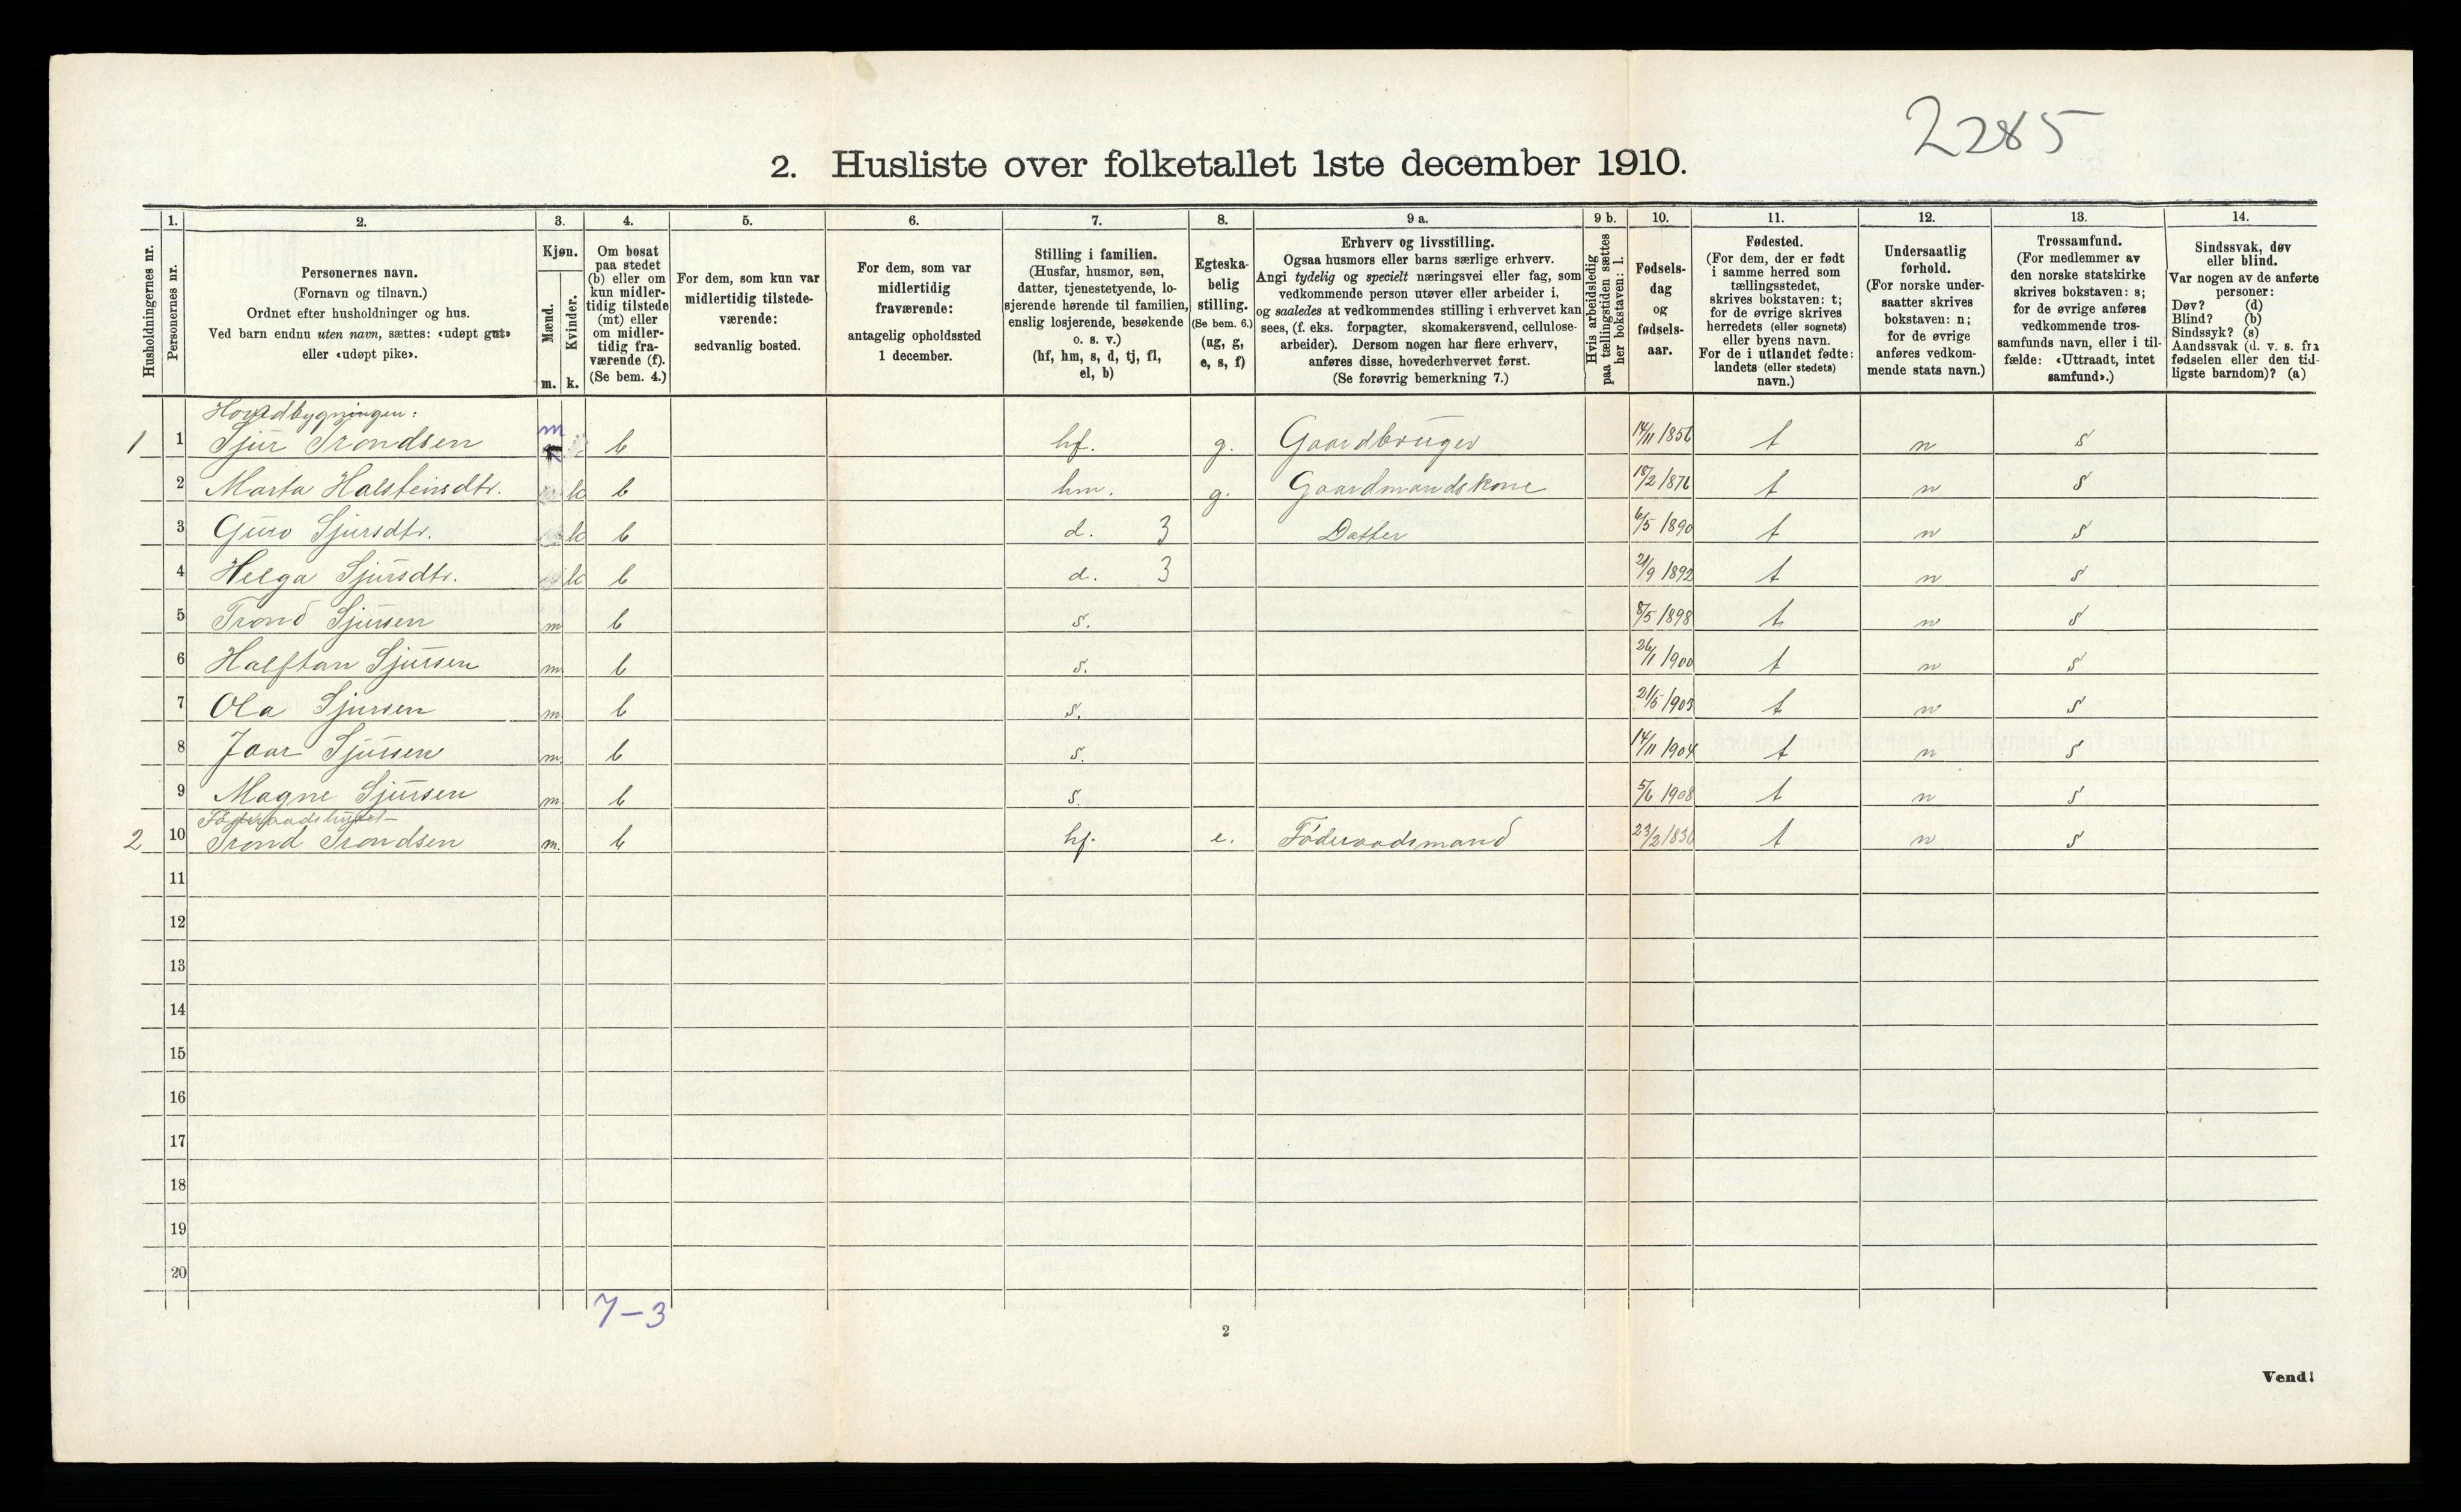 2285
2. Husliste over folketallet 1ste december 1910.
Husholdningernes nr.
1.
Personernes nr.
2.
Personernes navn.
(Fornavn og tilnavn.)
Ordnet efter husholdninger og hus.
Ved barn endnu uten navn, sættes: «udøpt gut»
eller «udøpt pike».
3.
Kjøn.
Mænd.
Kvinder.
m. k.
4.
Om bosat
paa stedet
(b) eller om
kun midler-
tidig tilstede
(mt) eller
om midler-
tidig fra-
værende (f).
(Se bem. 4.)
5.
For dem, som kun var
midlertidig tilstede-
værende:
sedvanlig bosted.
6.
For dem, som var
midlertidig
fraværende:
antagelig opholdssted
1 december.
7.
Stilling i familien.
(Husfar, husmor, søn,
datter, tjenestetyende, lo-
sjerende hørende til familien,
enslig losjerende, besøkende
o. s. v.)
(hf, hm, s, d, tj, fl,
el, b)
8.
Egteska-
belig
stilling.
(Se bem. 6.)
(ug, g,
e, s, f)
9 a.
Erhverv og livsstilling.
Ogsaa husmors eller barns særlige erhverv.
Angi tydelig og specielt næringsvei eller fag, som
vedkommende person utøver eller arbeider i,
og saaledes at vedkommendes stilling i erhvervet kan
sees, (f. eks. forpagter, skomakersvend, cellulose-
arbeider). Dersom nogen har flere erhverv,
anføres disse, hovederhvervet først.
(Se forøvrig bemerkning 7.)
9 b.
Hvis arbeidsledig
paa tællingstiden sættes
her bokstaven: l.
10.
Fødsels-
dag
og
fødsels-
aar.
11.
Fødested.
(For dem, der er født
i samme herred som
tællingsstedet,
skrives bokstaven: t;
for de øvrige skrives
herredets (eller sognets)
eller byens navn.
For de i utlandet fødte:
landets (eller stedets)
navn.)
12.
Undersaatlig
forhold.
(For norske under-
saatter skrives
bokstaven: n;
for de øvrige
anføres vedkom-
mende stats navn.)
13.
Trossamfund.
(For medlemmer av
den norske statskirke
skrives bokstaven: s;
for de øvrige anføres
vedkommende tros-
samfunds navn, eller i til-
fælde: «Uttraadt, intet
samfund».)
14.
Sindssvak, døv
eller blind.
Var nogen av de anførte
personer:
Døv? (d)
Blind? (b)
Sindssyk? (s)
Aandssvak (d. v. s. fra
fødselen eller den tid-
ligste barndom)? (a)
Hovedbygningen:
1 1 Sjur Trondsen m b hf. g. Gaardbruger 14/11 1856 t n s
2 Marta Halsteinsdtr. k b hm. g. Gaardmandskone 18/2 1876 t n s
3 Guro Sjursdtr. k b d. 3 Datter 6/5 1890 t n s
4 Helga Sjursdtr. k b d. 3 21/9 1892 t n s
5 Trond Sjursen m b s. 8/5 1898 t n s
6 Halftan Sjursen m b s. 26/11 1900 t n s
7 Ola Sjursen m b s. 21/5 1903 t n s
8 Joar Sjursen m b s. 14/11 1904 t n s
9 Magne Sjursen m b s. 5/6 1908 t n s
Føderaadshuset
2 10 Trond Trondsen m. b hf. e. Føderaadsmand 23/2 1836 t n s
11
12
13
14
15
16
17
18
19
20
7–3
2
Vend!